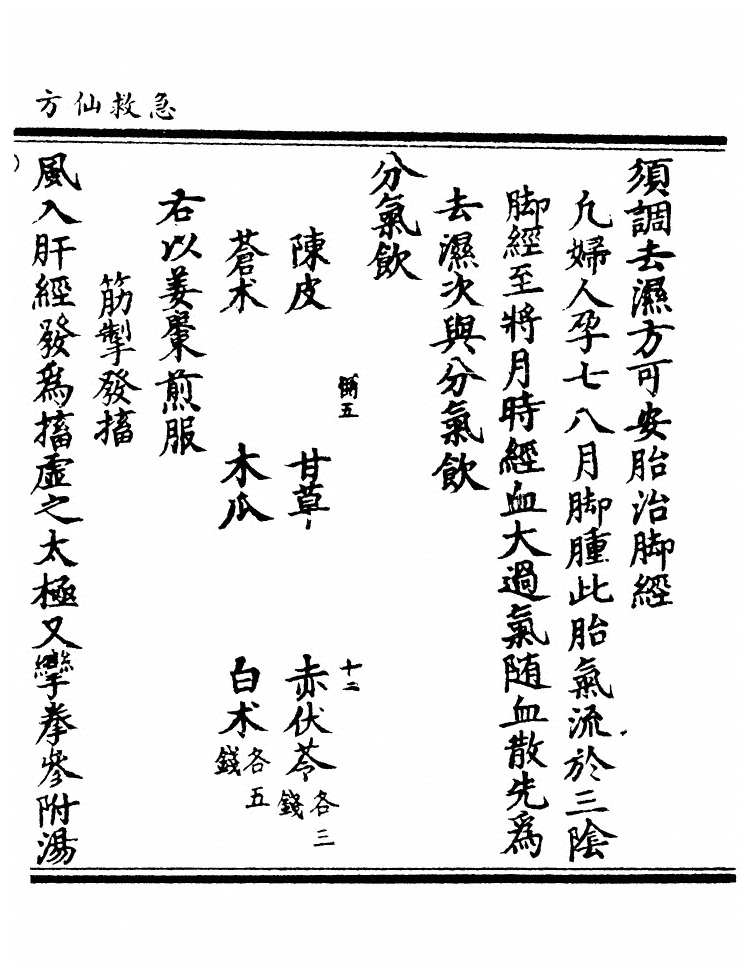 急救仙方
須調去濕方可安胎治脚經
凢婦人孕七八月脚腫此胎氣流於三陰
脚經至將月時經血大過氣随血散先爲
去濕次與分氣飲
分氣飲
十二
陳皮 甘草 赤伏苓各三錢
蒼术 木瓜 白术各五錢
右以姜棗煎服
筋掣發搐
風入肝經發爲搐虚之太極又攣拳參附湯